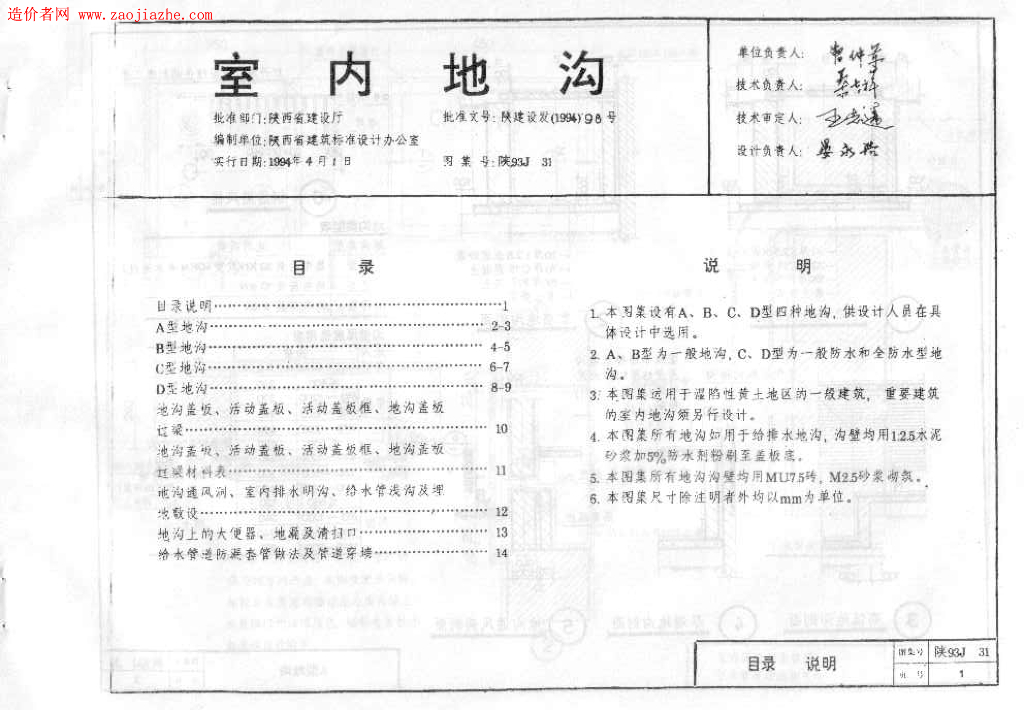 造价者网 www.zaojiazhe.com
室内地沟
批准部门:陕西省建设厅
批准文号:陕建设发(1994)98号
编制单位:陕西省建筑标准设计办公室
实行日期:1994年4月1日
图集号:陕93J 31
单位负责人:
技术负责人:
技术审定人:
设计负责人:
目录
目录说明……1
A型地沟……2-3
B型地沟……4-5
C型地沟……6-7
D型地沟……8-9
地沟盖板、活动盖板、活动盖板框、地沟盖板
过梁……10
地沟盖板、活动盖板、活动盖板框、地沟盖板
过梁材料表……11
地沟通风洞、室内排水明沟、给水管浅沟及埋
地敷设……12
地沟上的大便器、地漏及清扫口……13
给水管道防漏套管做法及管道穿墙……14
说明
1. 本图集设有A、B、C、D型四种地沟,供设计人员在具
体设计中选用。
2. A、B型为一般地沟,C、D型为一般防水和全防水型地
沟。
3. 本图集适用于湿陷性黄土地区的一般建筑, 重要建筑
的室内地沟须另行设计。
4. 本图集所有地沟如用于给排水地沟,沟壁均用1:2.5水泥
砂浆加5%防水剂粉刷至盖板底。
5. 本图集所有地沟沟壁均用MU7.5砖,M2.5砂浆砌筑。
6. 本图集尺寸除注明者外均以mm为单位。
目录 说明
图集号 陕93J 31
页号 1